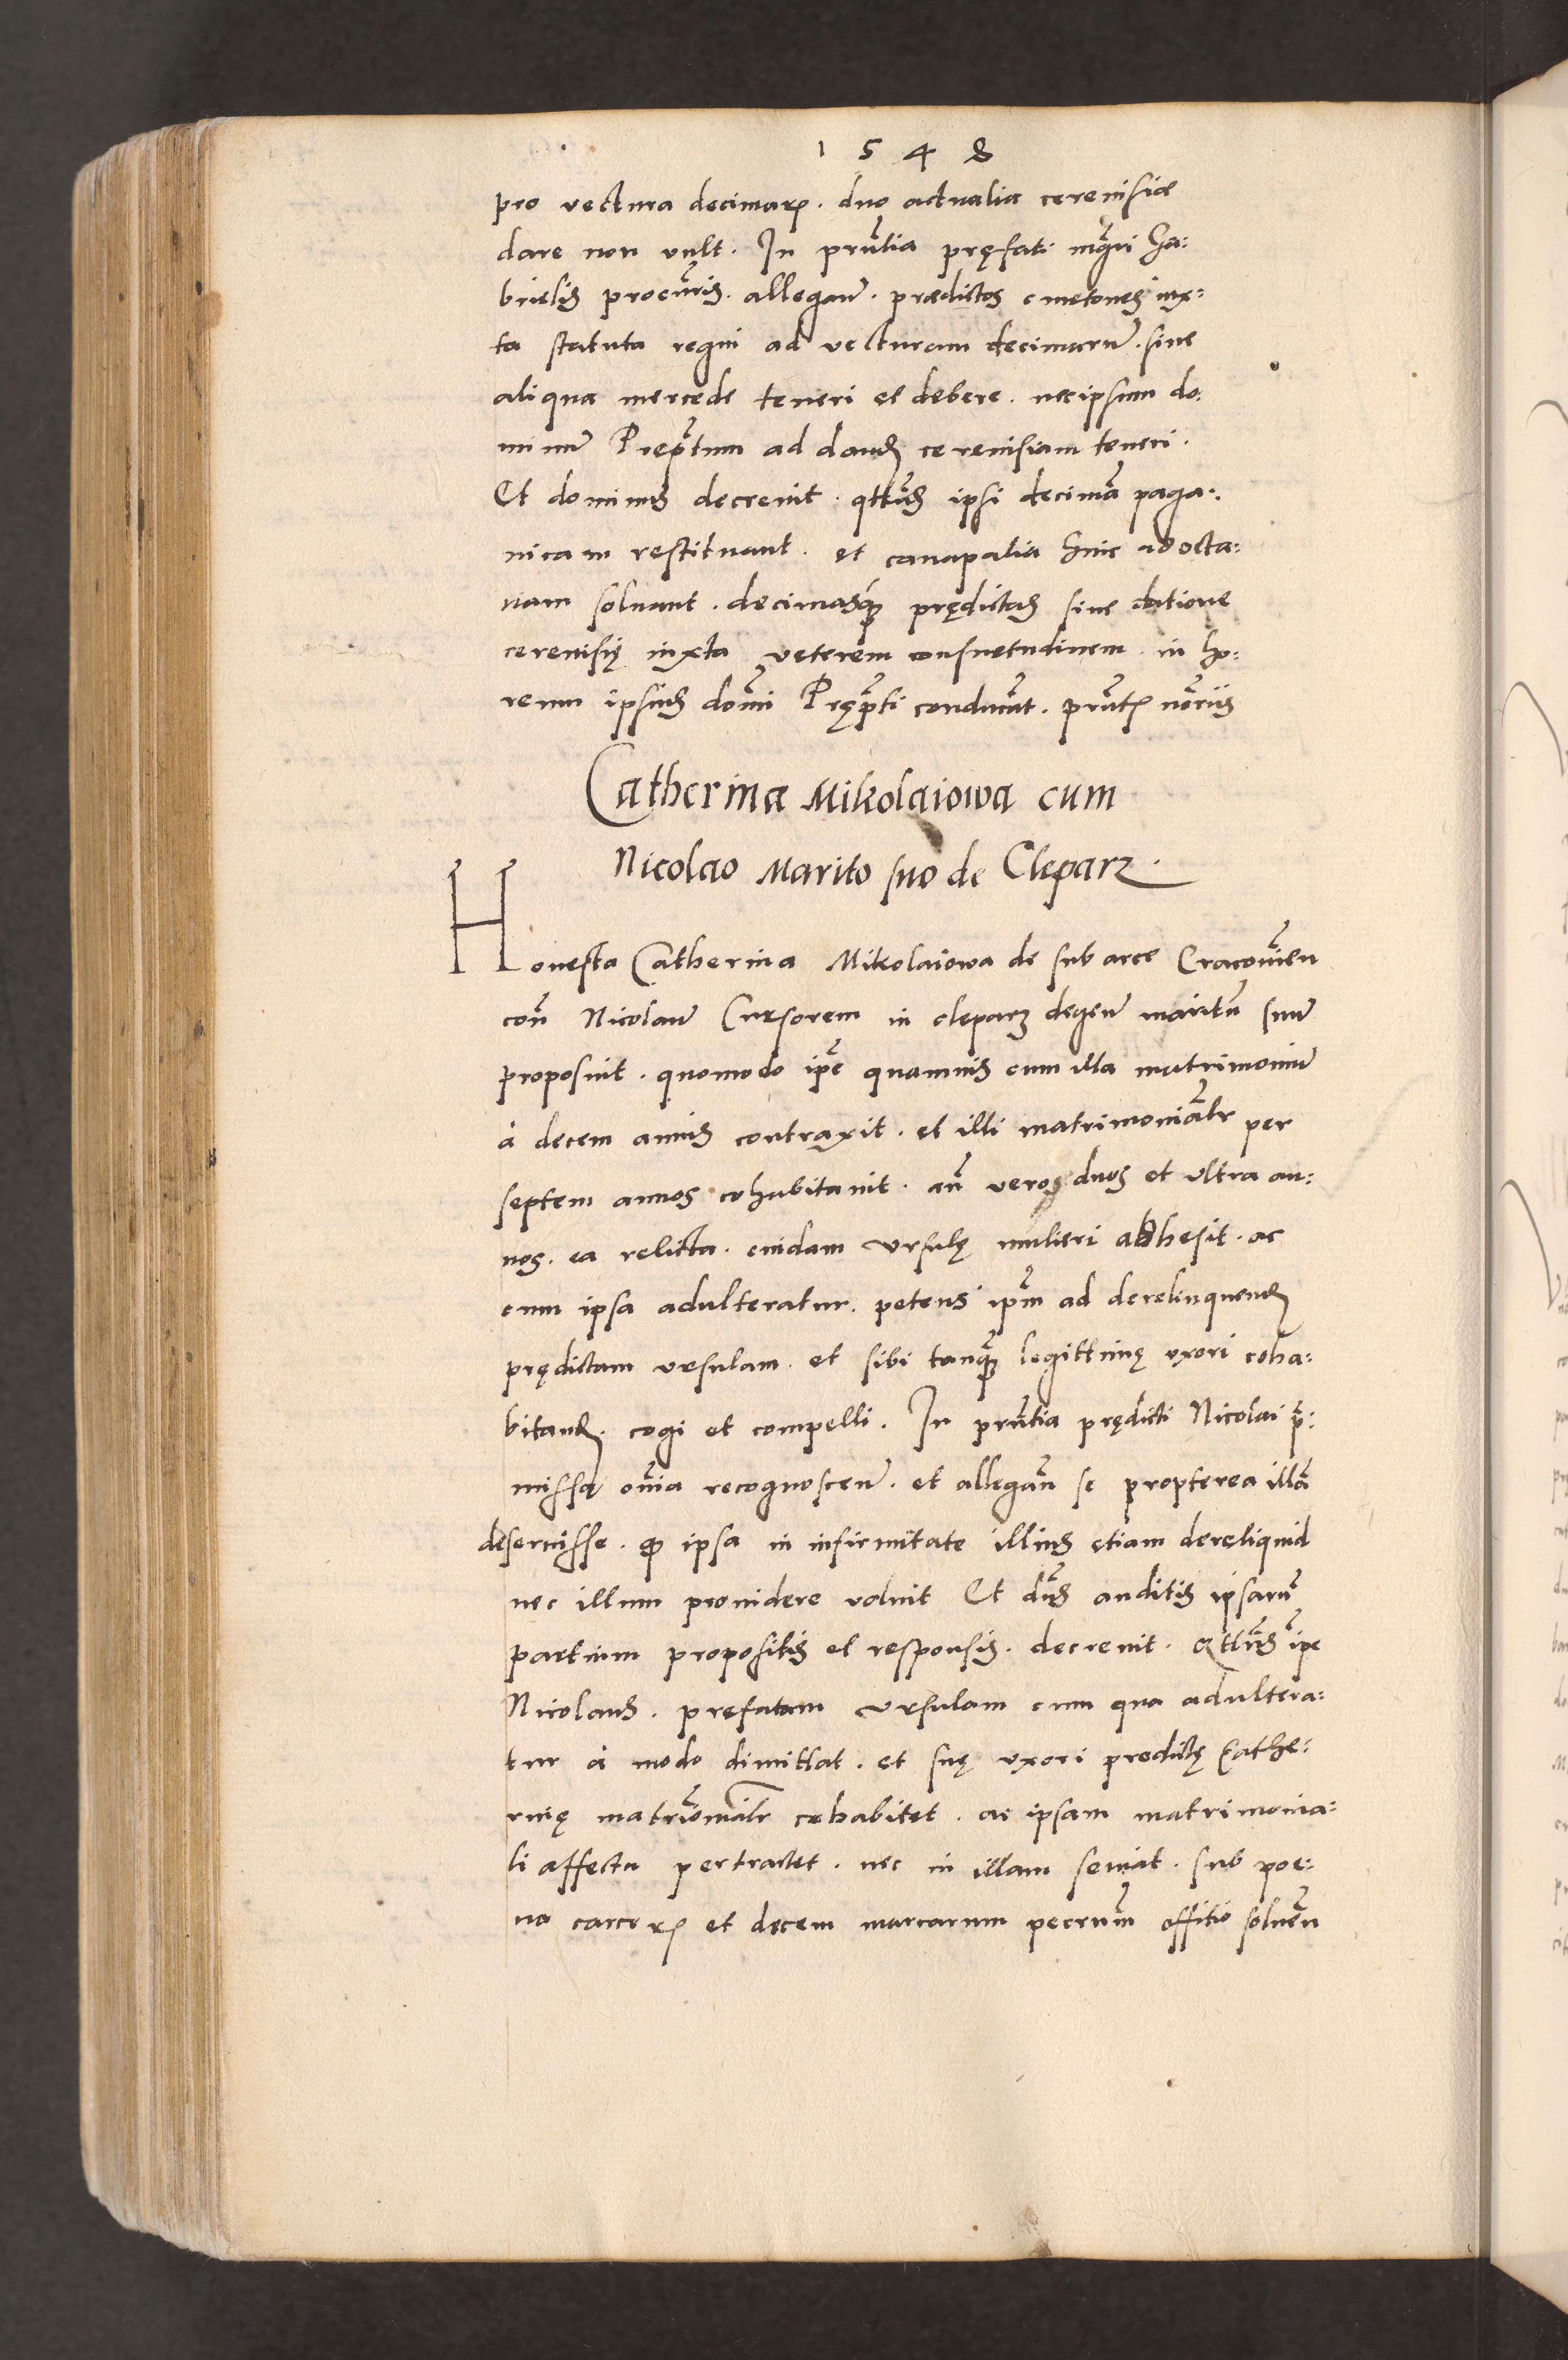 1548
pro vectura decimarꝝ. duo actualia cerevisiæ
dare non vult. In prñtia pręfati mgri Ga:
brielis procũris. allegañ. prædictos cmetones iux:
ta statuta regni ad vecturam decimarũ. sine
aliqua mercede teneri et debere. nec ipsum do:
minũ Prept̃um ad dand cerevisiam teneri.
Et dominus decrevit. qt̃tus ipsi decimã paga:
nicam restituant. et canapalia hinc ad octa:
vam solvant. decimasq̃ prędictas sine datione
cerevisię iuxta veterem consuetudinem in ho:
reum ipsius domĩ Pręp̃ti conducãt. prñtꝭ not̃riis
Catherina Mikolaiowa cum
Nicolao Marito suo de Cleparz.
Honesta Catherina Mikolaiowa de sub arce Cracovieñ
coñ Nicolaũ Cursorem in cleparz degeñ maritũ suũ
proposuit. quomodo ip̃e quamvis cum illa matrimoniũ
à decem annis contraxit. et illi matrimoniãlr per
septem annos cohabitavit. añ veros duos et ultra an:
nos. ea relicta. cuidam Ursulę mulieri adhesit. ac
cum ipsa adulteratur. petens ip̃m ad derelinquend
prędictam Ursulam. et sibi tanq̃ legittimę uxori coha:
bitand. cogi et compelli. In prñtia prędicti Nicolai p̃:
missa om̃ia recognosceñ. et allegañ se propterea illã
deseruisse. qꝫ ipsa in infirmitate illius etiam dereliquid
nec illum providere voluit Et dñs auditis ipsarũ
partium propositis et responsis. decrevit. qt̃tus ip̃e
Nicolaus. prefatam Ursulam cum qua adultera:
tur à modo dimittat. et suę uxori predictę Cathe:
rinę matrimoniãlr cohabitet. ac ipsam matrimonia:
li affectu pertractet. nec in illam seviat. sub poe:
na carcerꝭ et decem marcarum pecũm offitio solveñ